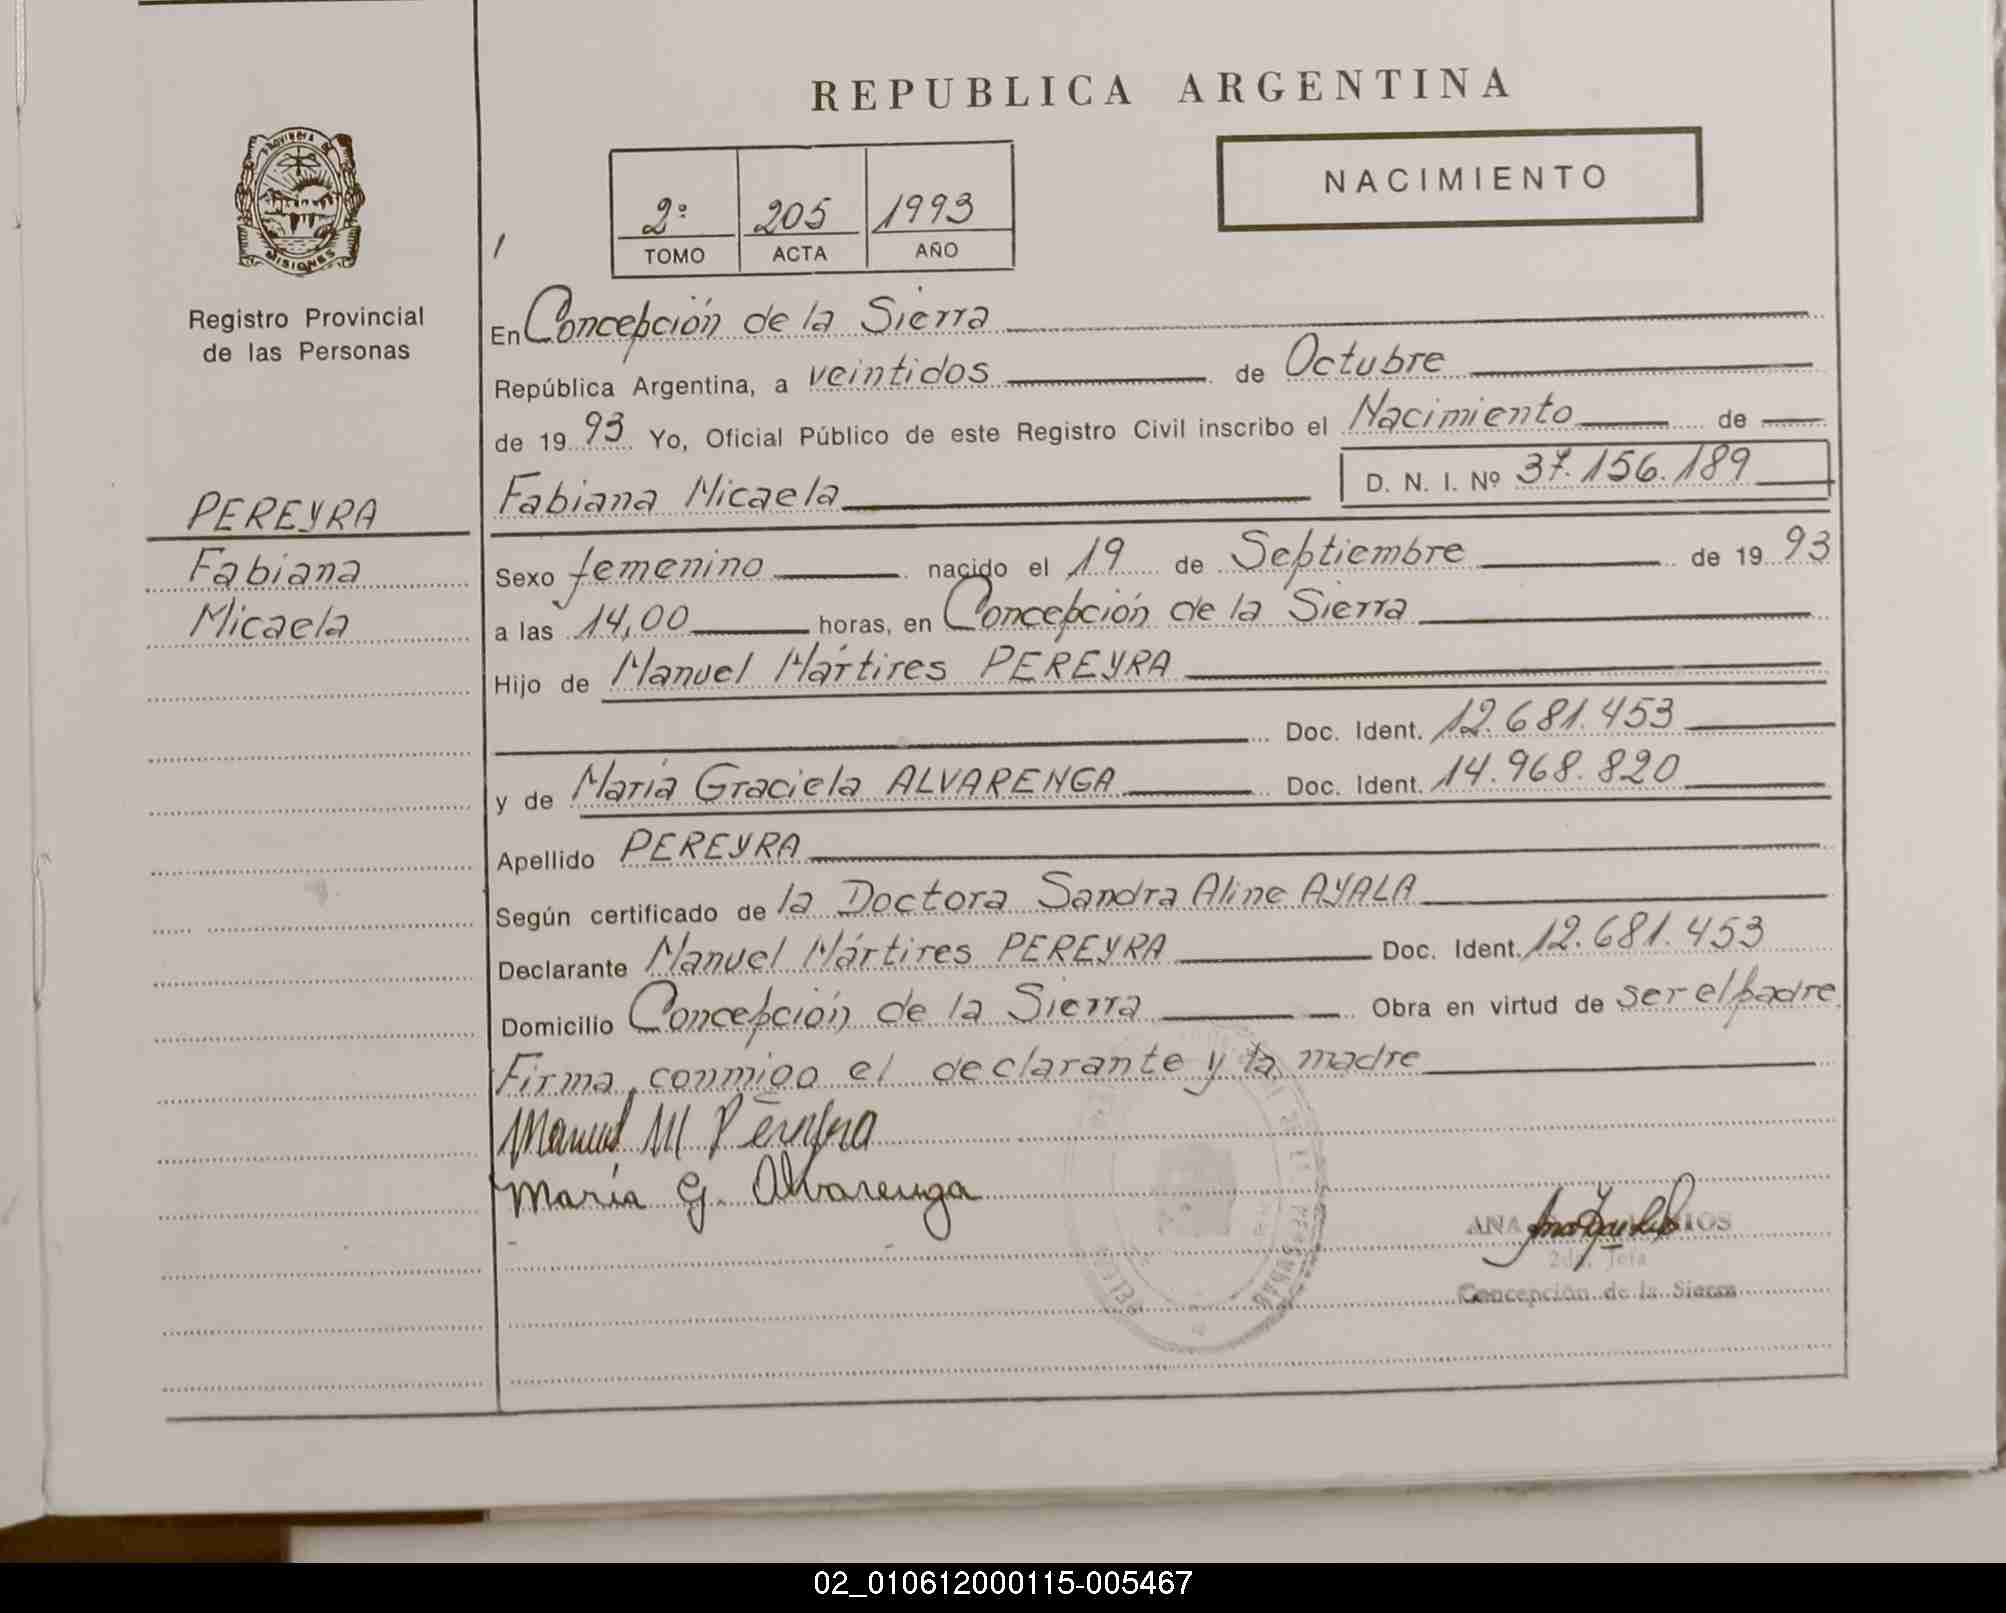 REPUBLICA ARGENTINA
PROVINCIA DE
MISIONES
Registro Provincial
de las Personas
NACIMIENTO
2º 205 1993
TOMO ACTA AÑO
En Concepción de la Sierra
República Argentina, a veintidos de Octubre
de 1993 Yo, Oficial Público de este Registro Civil inscribo el Nacimiento de
Fabiana Micaela D. N. I. Nº 37.156.189
PEREYRA
Fabiana
Micaela
Sexo femenino nacido el 19 de Septiembre de 1993
a las 14,00 horas, en Concepción de la Sierra
Hijo de Manuel Mártires PEREYRA
Doc. Ident. 12.681.453
y de María Graciela ALVARENGA Doc. Ident. 14.968.820
Apellido PEREYRA
Según certificado de la Doctora Sandra Aline AYALA
Declarante Manuel Mártires PEREYRA Doc. Ident. 12.681.453
Domicilio Concepción de la Sierra Obra en virtud de ser el padre
Firma conmigo el declarante y la madre
Manuel M Pereyra
María G. Alvarenga
ANA
Concepción de la Sierra
02_010612000115-005467